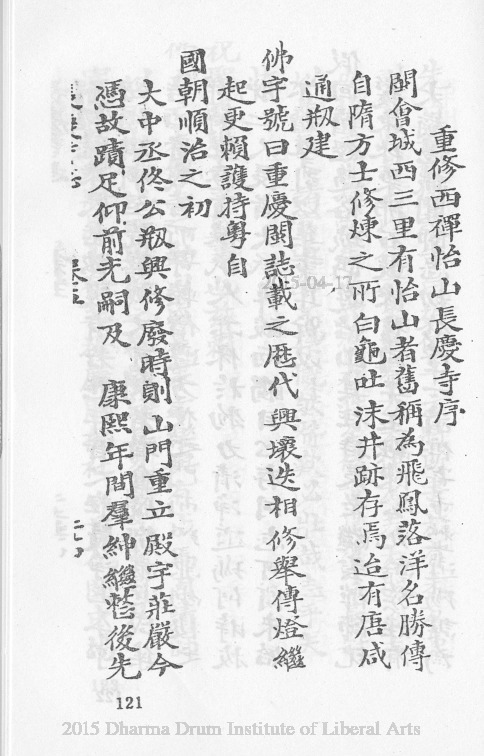 重修西禪怡山長慶寺序
閩會城西三里有怡山者舊稱為飛鳳落洋名勝傳
自隋方士修煉之所白龜吐沫井跡存焉迨有唐咸
通剏建
佛宇號曰重慶閩誌載之歷代興壞迭相修舉傳燈繼
起更賴護持粵自
國朝順治之初
大中丞佟公剏興修廢時則山門重立殿宇莊嚴今
憑故蹟足仰前光嗣及 康熙年間羣紳繼囋後先
121
2015-04-17
2015 Dharma Drum Institute of Liberal Arts